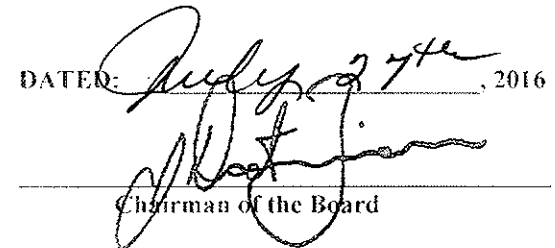 DATED: July 27th, 2016
Chairman of the Board